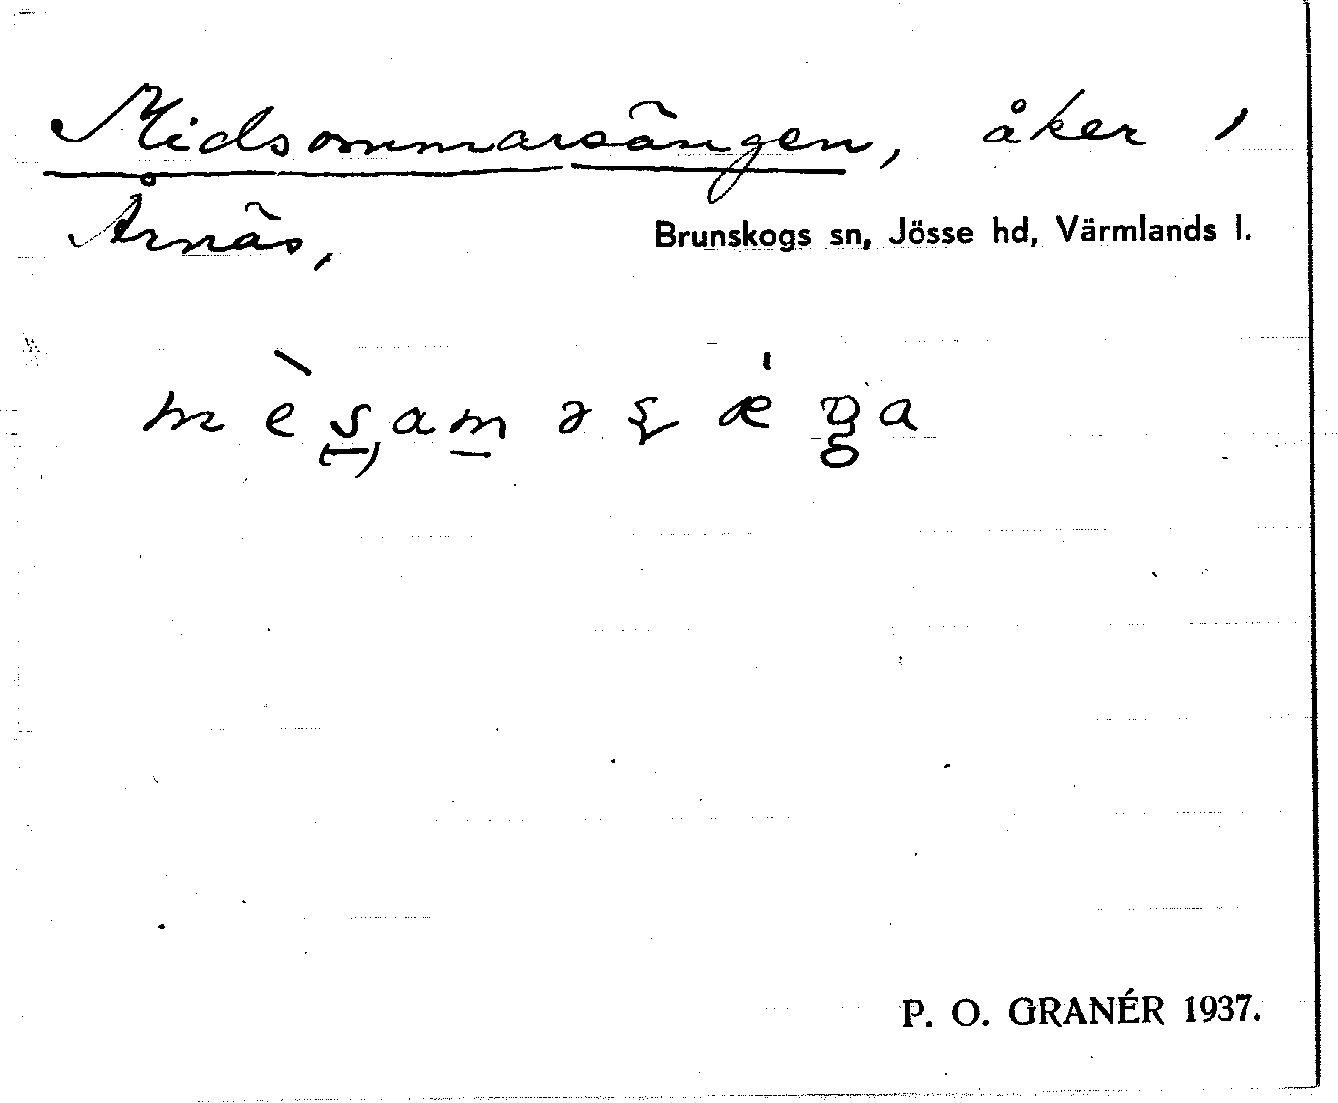 Midsommarsängen, åker i
Årnäs, Brunskogs sn, Jösse hd, Värmlands l.
P. O. GRANÉR 1937.